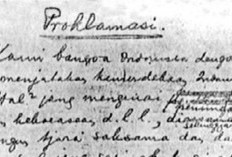 Proklamasi.
Kami bangsa Indonesia denga
menjatakan kemerdekaan Indon
hal² jang mengenai
kekoeasaan d.l.l., 
ngan tjara saksama da